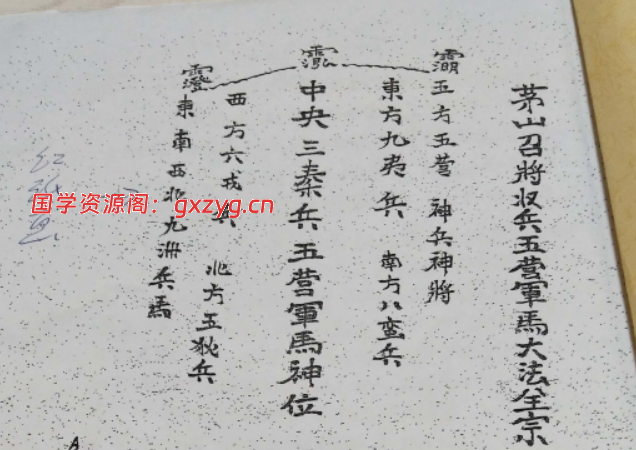 茅山召將収兵五营軍馬大法全宗
五方五营 神兵神將
東方九夷兵 南方八蛮兵
中央三秦兵五营軍馬神位
西方六戎兵 北方五狄兵
東南西北九洲兵馬
国学资源阁：gxzyg.cn
A